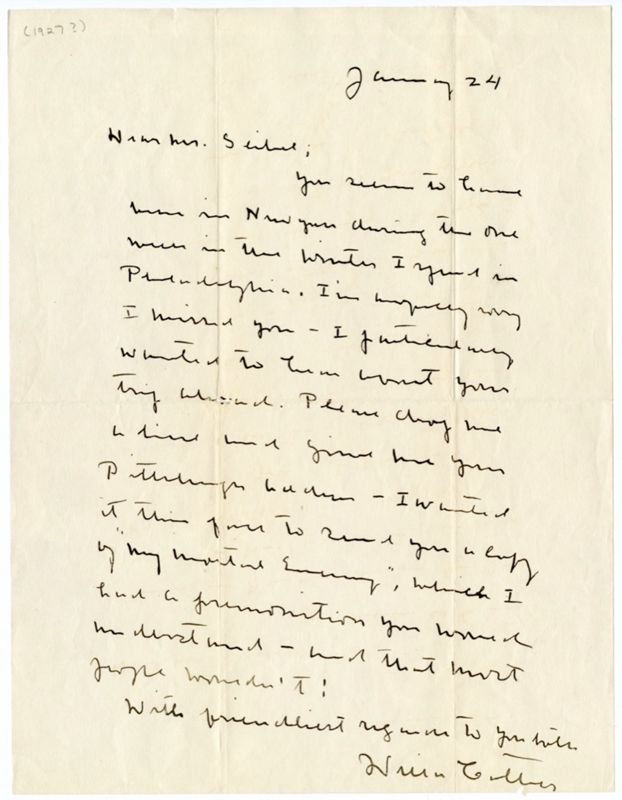 (1927?)
January 24
Dear Mr. Seibel;
You seem to have
been in New York during the one
week in the winter I spent in
Philadelphia. I'm awfully sorry
I missed you - I particularly
wanted to hear about your
trip abroad. Please drop me
a line and give me your
Pittsburgh address - I wanted
it this fall to send you a copy
of "My Mortal Enemy", which I
had a premonition you would
understand - and that most
people wouldn't!
With friendliest regards to you both
Willa Cather